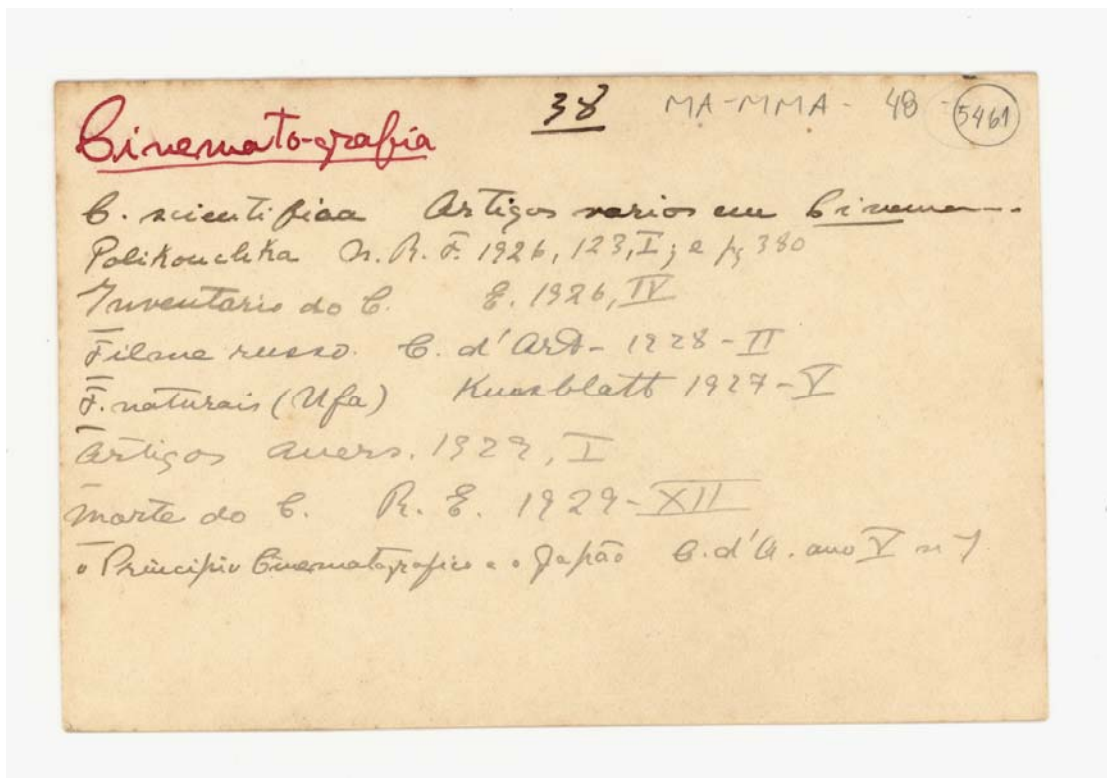 38 MA-MMA-48-5461
Cinematografia
C. scientifica Artigos varios em Cinema
Polikouchka N. R. F. 1926, 123, I; e pg 380
Inventario do C. E. 1926, IV
Filme russo. C. d'Art - 1928 - II
F. naturais (Ufa) 1927 - V
Artigos 1929, I
Morte do C. R. E. 1929 - XII
O Principio Cinematografico e o Japão C. d'A. ano V nº 1